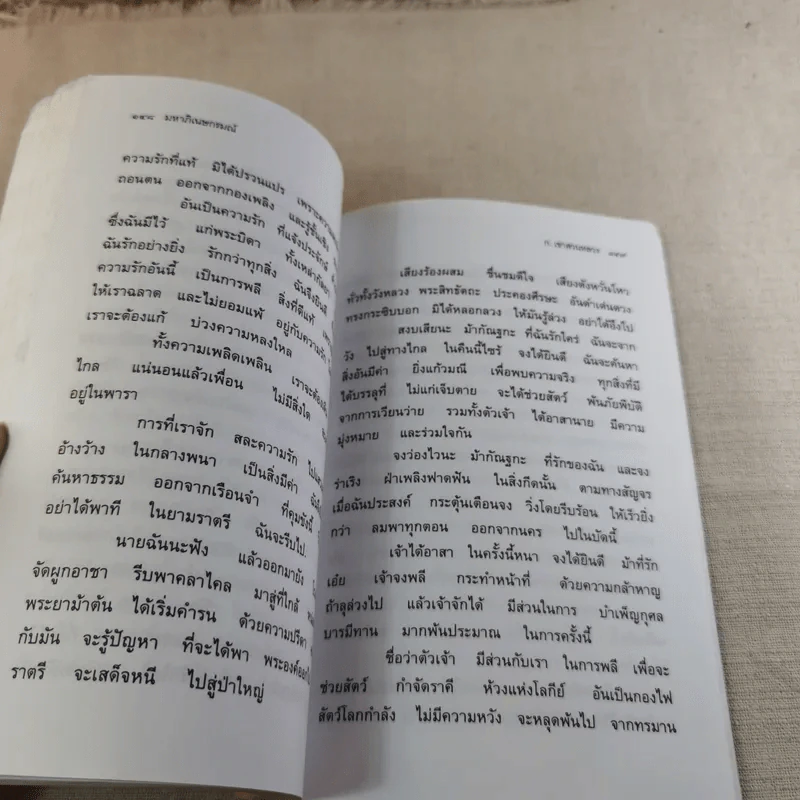 ๑๔๘ มหาภิเนษกรมณ์
ความรักที่แท้ มิได้ปรวนแปร เพราะความ
ถอนตน ออกจากกองเพลิง และรู้ชั้นเชิง
อันเป็นความรัก ที่แจ้งประจักษ์
ซึ่งฉันมีไว้ แก่พระบิดา ทั้งเหล่ากัลยา
ฉันรักอย่างยิ่ง รักกว่าทุกสิ่ง ฉันจึงยินดี
ความรักอันนี้ เป็นการพลี สิ่งที่ดีแท้
ให้เราฉลาด และไม่ยอมแพ้ อยู่กับความรัก
เราจะต้องแก้ บ่วงความหลงใหล
ทั้งความเพลิดเพลิน เราจะต้อง
ไกล แน่นอนแล้วเพื่อน ไม่มีสิ่งใด
อยู่ในพารา
การที่เราจัก สละความรัก
อ้างว้าง ในกลางพนา เป็นสิ่งมีค่า
ค้นหาธรรม ออกจากเรือนจำ ที่คุมขังนี้
อย่าได้พาที ในยามราตรี ฉันจะรีบไป.
นายฉันนะฟัง แล้วออกมายัง
จัดผูกอาชา รีบพาคลาไคล มาสู่ที่ใกล้
พระยาม้าต้น ได้เริ่มคำรน ด้วยความปรีดา
กับมัน จะรู้ปัญหา ที่จะได้พา พระองค์
ราตรี จะเสด็จหนี ไปสู่ป่าใหญ่
ก. เขาสวนหลวง ๑๔๙
เสียงร้องผสม ชื่นชมดีใจ เสียงดังหวั่นไหว
ทั่วทั้งวังหลวง พระสิทธัตถะ ประคองศีรษะ อันดำเด่นดวง
ทรงกระซิบบอก มิได้หลอกลวง ให้มันรู้ล่วง อย่าได้อึงไป
สงบเสียนะ ม้ากัณฐกะ ที่ฉันรักใคร่ ฉันจะจาก
วัง ไปสู่ทางไกล ในคืนนี้ไซร้ จงได้ยินดี ฉันจะค้นหา
สิ่งอันมีค่า ยิ่งแก้วมณี เพื่อพบความจริง ทุกสิ่งที่มี
ได้บรรลุที่ ไม่แก่เจ็บตาย จะได้ช่วยสัตว์ พ้นภัยพิบัติ
จากการเวียนว่าย รวมทั้งตัวเจ้า ได้อาสานาย มีความ
มุ่งหมาย และร่วมใจกัน
จงว่องไวนะ ม้ากัณฐกะ ที่รักของฉัน และจง
ร่าเริง ฝ่าเพลิงฟาดฟัน ในสิ่งกีดกั้น ตามทางสัญจร
เมื่อฉันประสงค์ กระตุ้นเตือนจง วิ่งโดยรีบร้อน ให้เร็วยิ่ง
กว่า ลมพาทุกตอน ออกจากนคร ไปในบัดนี้
เจ้าได้อาสา ในครั้งนี้หนา จงได้ยินดี ม้าที่รัก
เอ๋ย เจ้าจงพลี กระทำหน้าที่ ด้วยความกล้าหาญ
ถ้าลุล่วงไป แล้วเจ้าจักได้ มีส่วนในการ บำเพ็ญกุศล
บารมีทาน มากพ้นประมาณ ในการครั้งนี้
ชื่อว่าตัวเจ้า มีส่วนกับเรา ในการพลี เพื่อจะ
ช่วยสัตว์ กำจัดราคี ห้วงแห่งโลกีย์ อันเป็นกองไฟ
สัตว์โลกกำลัง ไม่มีความหวัง จะหลุดพ้นไป จากทรมาน